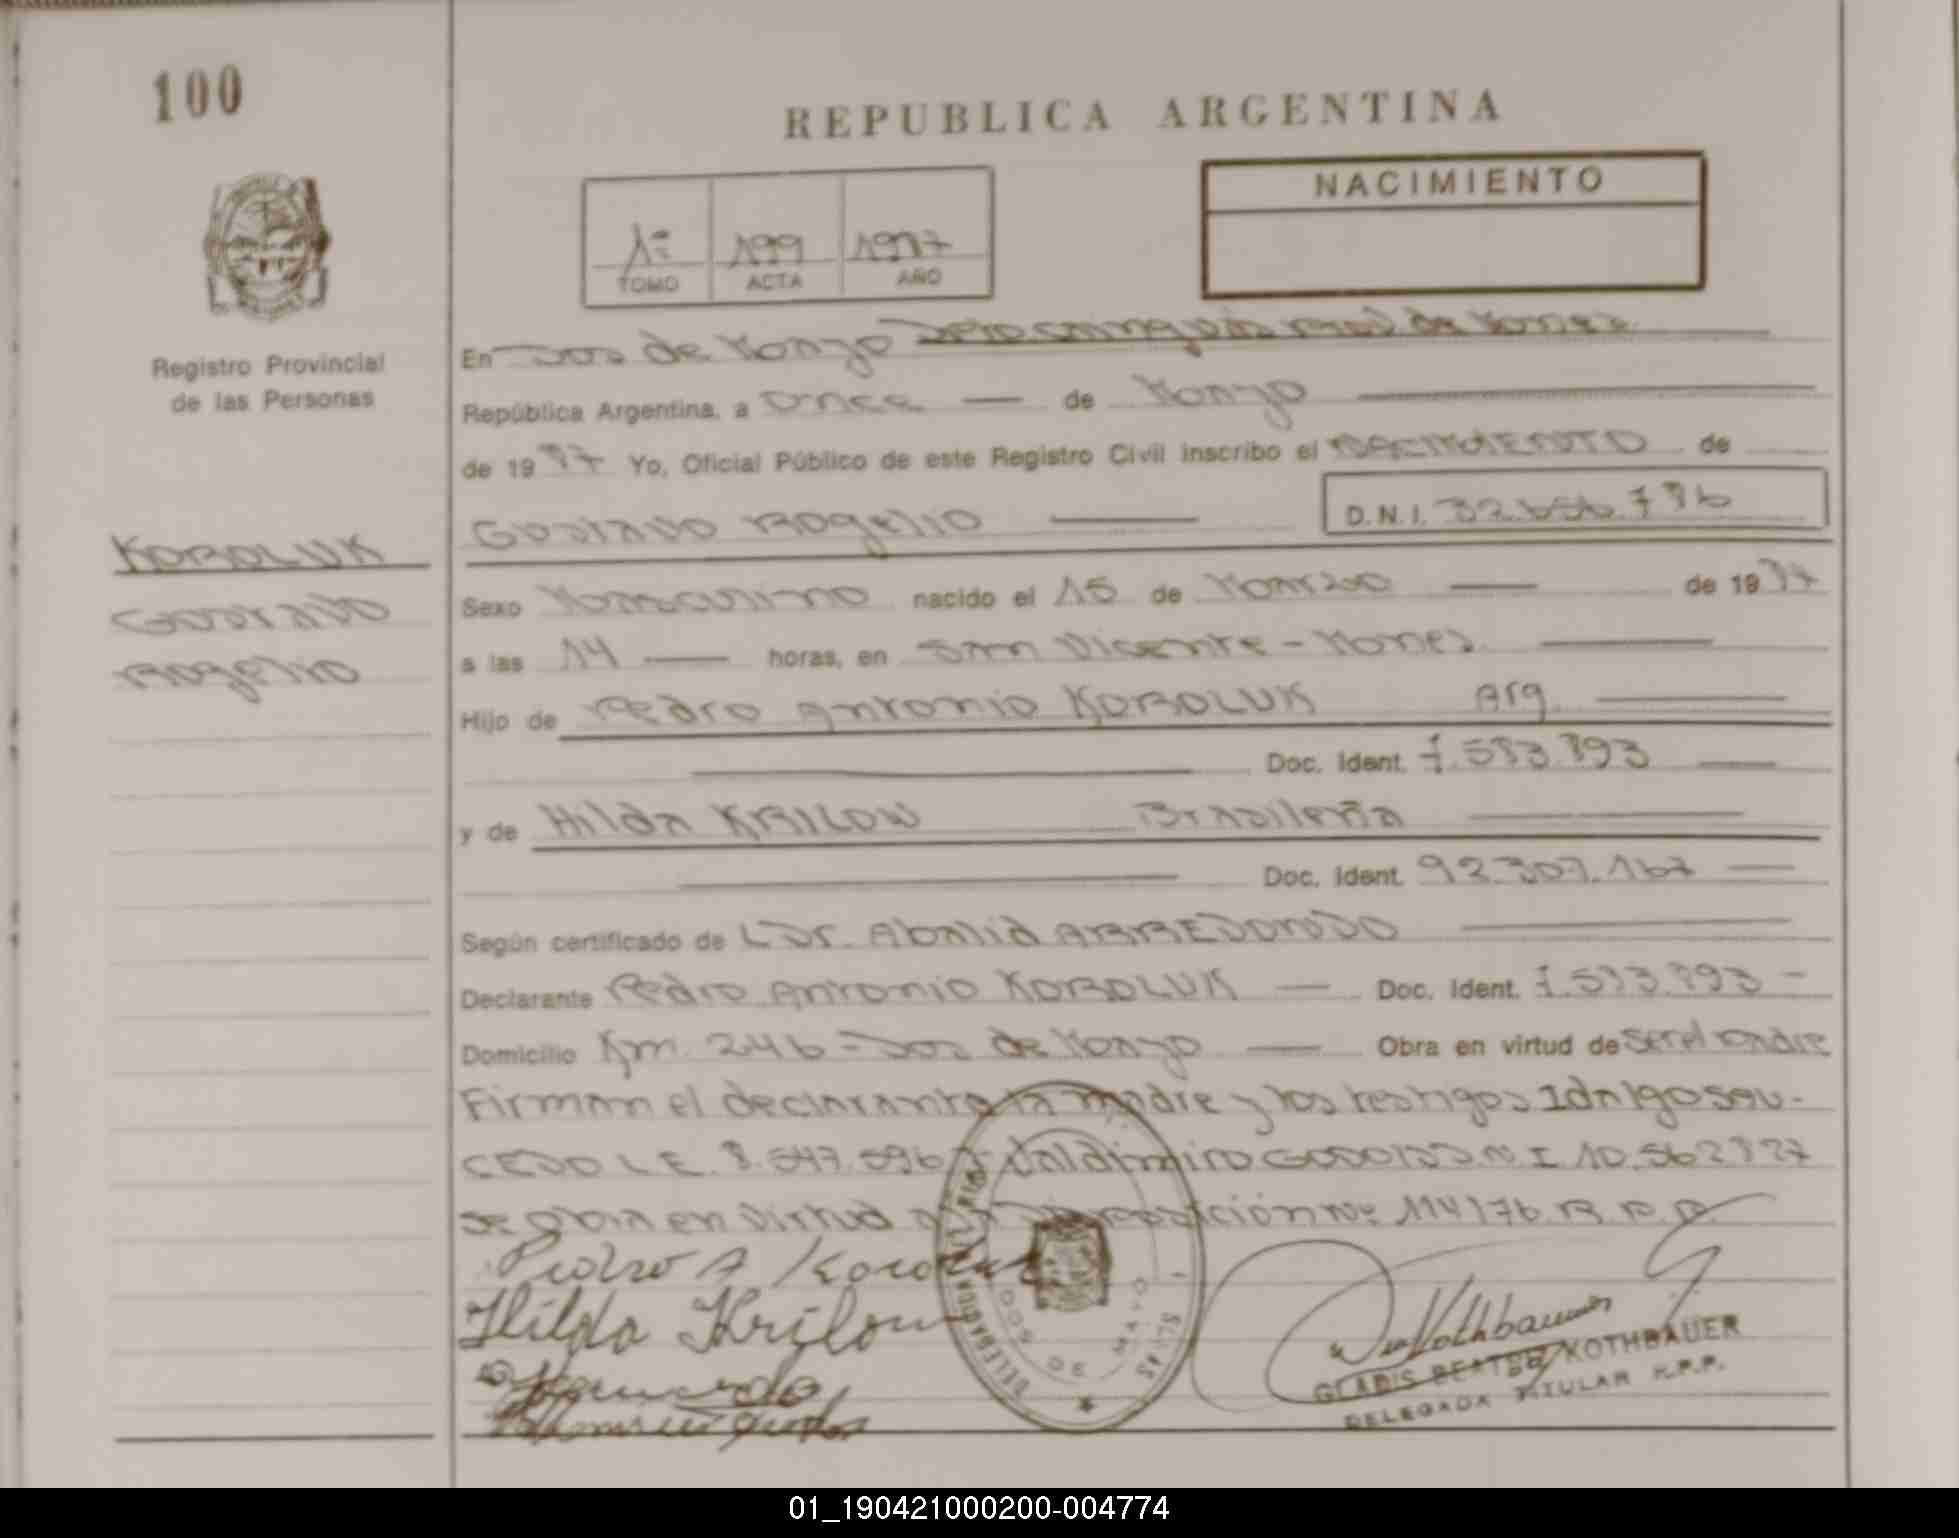 100
REPUBLICA ARGENTINA
NACIMIENTO
1º 199 1987
TOMO ACTA AÑO
Registro Provincial
de las Personas
En Dos de Mayo
República Argentina, a once — de Mayo
de 1987 Yo, Oficial Público de este Registro Civil inscribo el NACIMIENTO de
Gustavo Rogelio D.N.I. 32.656.786
KOROLUK
Gustavo
Rogelio
Sexo Masculino nacido el 15 de Marzo — de 1987
a las 14 — horas, en San Vicente - Mnes.
Hijo de Pedro Antonio KOROLUK Arg.
Doc. Ident. 7.583.893
y de Hilda KRILOW Brasileña
Doc. Ident. 92.307.167
Según certificado de Dr. ARREDONDO
Declarante Pedro Antonio KOROLUK — Doc. Ident. 7.583.893 -
Domicilio Km. 246 - Dos de Mayo — Obra en virtud de ser el padre
Firman el declarante la madre y los testigos Idalgo SAU-
CEDO L.E. 8.547.596 y Valdimiro GODOI D.N.I 10.562.827
se obra en virtud Disposición Nº 114/76. R.P.P.
Hilda Krilow
DOS DE MAYO
Kothbauer
GLADIS BEATRIZ KOTHBAUER
DELEGADA TITULAR R.P.P.
01_190421000200-004774